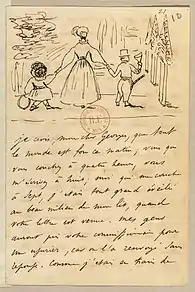 21
je crois, mon cher Georges, que tout
le monde est fou ce matin, vous qui
vous couchez à quatre heures, vous
m'écrivez à huit, moi qui me couche
à sept, j'étais tout grand éveillé
au beau milieu de mon lit, quand
votre lettre est venue. mes gens
auront pris votre commissionnaire pour
un usurier, car on l'a renvoyé sans
réponse. Comme j'étais en train de